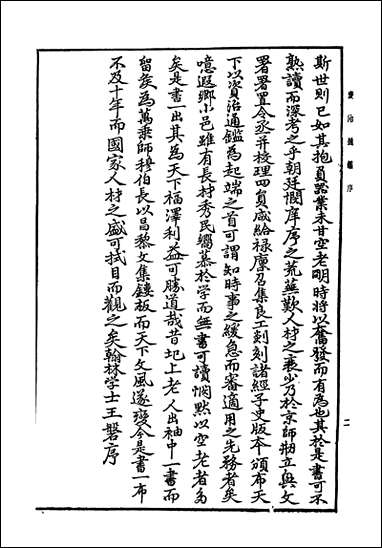 資治通鑑序
二
斯世則已如其抱負器業未甘空老明時將以奮發而有為也其於是書可不
熟讀而深考之乎朝廷憫庠序之荒蕪歎人材之衰少乃於京師剏立興文
署署置令丞并校理四員咸給祿廩召集良工剡刻諸經子史版本頒布天
下以資治通鑑為起端之首可謂知時事之緩急而審適用之先務者矣
噫遐鄉小邑雖有長材秀民嚮慕於學而無書可讀憫默以空老者多
矣是書一出其為天下福澤利益可勝道哉昔圯上老人出袖中一書而
留矦為萬乘師穆伯長以昌黎文集鏤板而天下文風遂變今是書一布
不及十年而國家人材之盛可拭目而觀之矣翰林學士王磐序